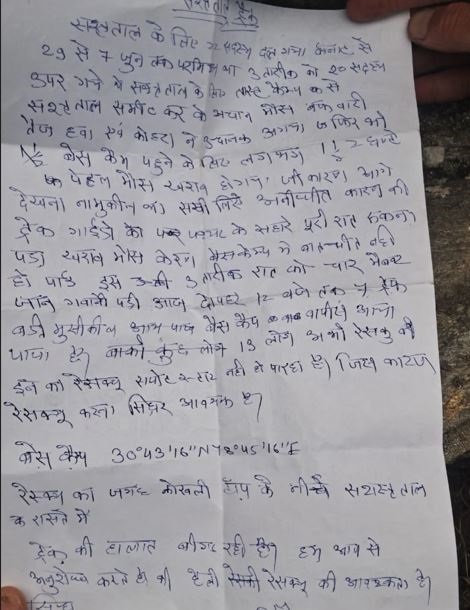 सहस्त्रताल
सहस्त्रताल के लिए 22 सदस्य दल गया
29 से 7 जुन तक परमिशन था 3 तारीक को 20 सदस्य
उपर गये थे सहस्त्रताल के लिए लास्ट केम्प क से
सहस्त्रताल समीट कर के अचान मोस बर्फ बारी
तेज हवा एवं कोहरा ने अचानक आगया
बेस केम पहुने के लिए लगभग 1 - 2 घण्टे
पहले मोस खराब होगया जी कारण आगे
देखना नामुकीन था सभी लिए अनीचीत कारण की
ट्रेक गाईडो को पत्थर के सहारे पुरी रात रुकना
पडा खराब मोस केरण बेसकेम्प मे बातचीत नही
हो पाई इस 3 तारीक रात को चार मेम्बर
जान गवानी पडी आज दोपहर 12 बजे तक ट्रेक
बडी मुसीकील आठ पाच बेस कैंप वापीस आना
पाया है बाकी कुछ लोग 13 लोग अभी रेसकु की
इन का रेसक्यु सपोट नही हो पारहा है जिस कारण
रेसक्यु करना सिघर आवश्यक है
बेस कैम्प 30°43'16"N 78°45'16"E
रेस्क्यु का जगह कोखली टॉप के नीचे सहस्त्र ताल
के रास्ते में
ट्रेक की हालात बीगड रही है हम आप से
अनुरोध करते है की हेली रेसक्यु की आवश्कता है